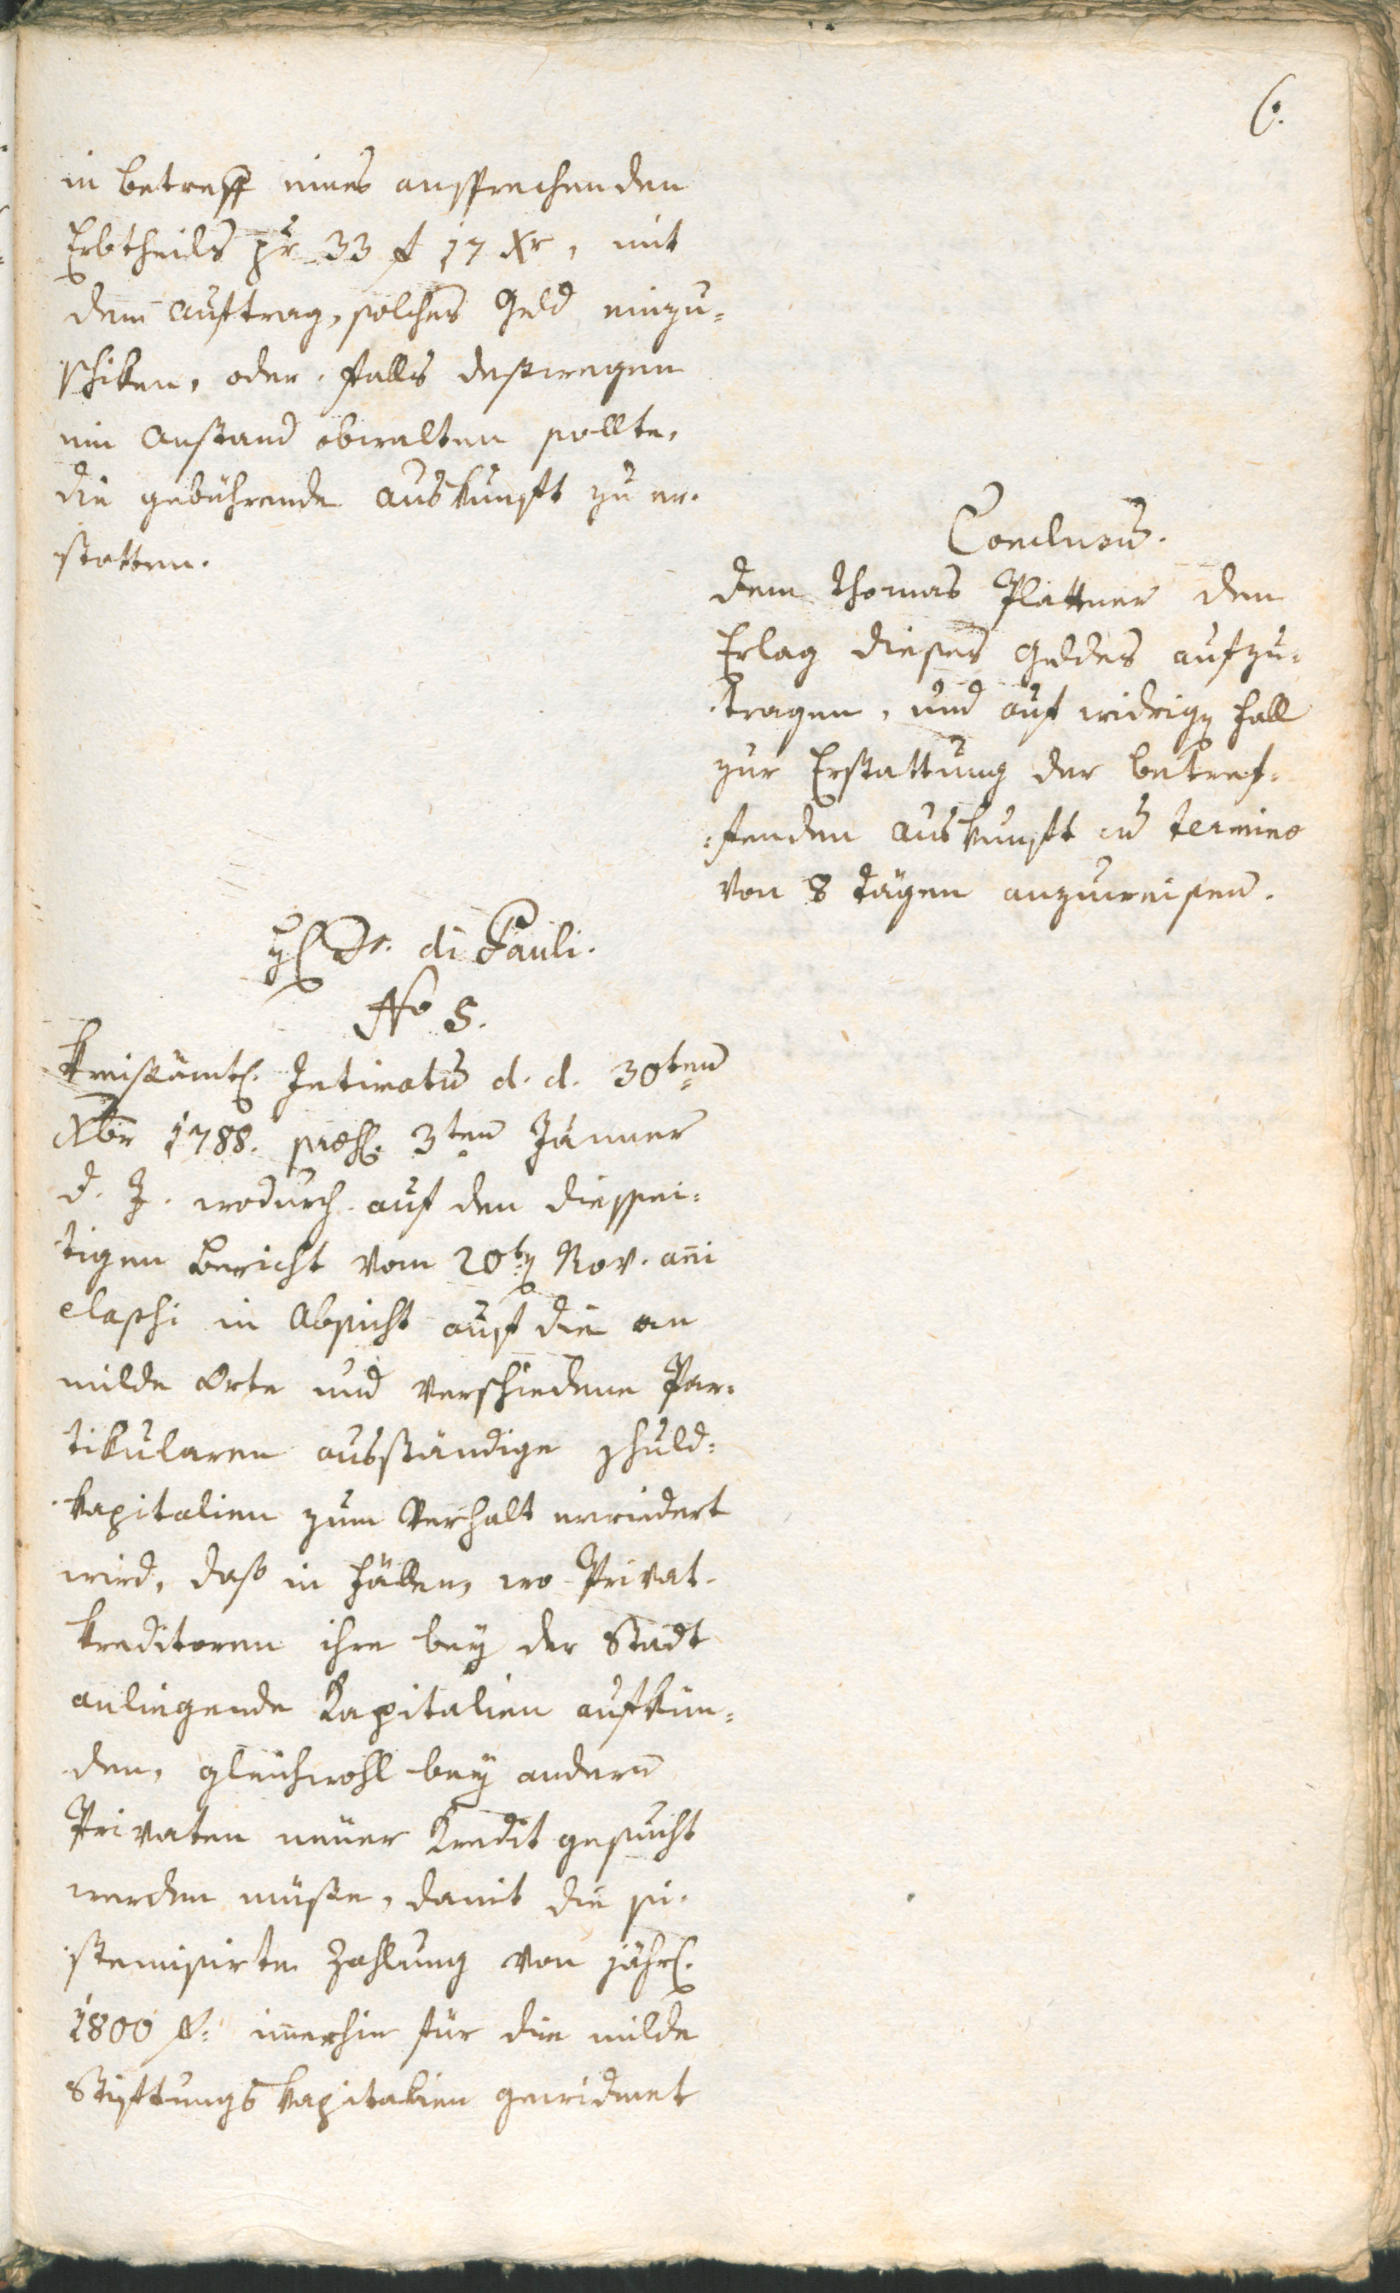 6.
in betreff eines ansprechenden
Erbtheils pr 33 f 17 Xr, mit
dem auftrag, solches Geld einzu=
schiken, oder falls deßwegen
ein Anstand obwalten sollte,
die gebührende auskunft zu er=
statten.
Conclusum.
dem Thomas Plattner den
Erlag dieses Geldes aufzu=
tragen, und auf widrigen fall
zur Erstattung der betref=
=fenden auskunft in termino
von 8 tägen anzuweisen.
H Dr. di Pauli.
No 5.
Kreisämtl. Intimatum d. d. 30ten
Xbr 1788. praes. 3ten Jänner
d. J. wodurch auf den diessei=
tigen Bericht vom 20ten Nov. anni
elapsi in Absicht auf die an
milde Orte und verschiedene Par=
tikularen ausständige schuld=
kapitalien zum Verhalt erwiedert
wird, daß in fällen, wo Privat=
kreditoren ihre bey der Stadt
anliegende Kapitalien aufkün=
den, gleichwohl bey andern
Privaten neüer Kredit gesucht
werden müße, damit die si=
stemisirte Zahlung von jährl.
1800 f: immerhin für die milde
Stiftungs kapitalien gewidmet